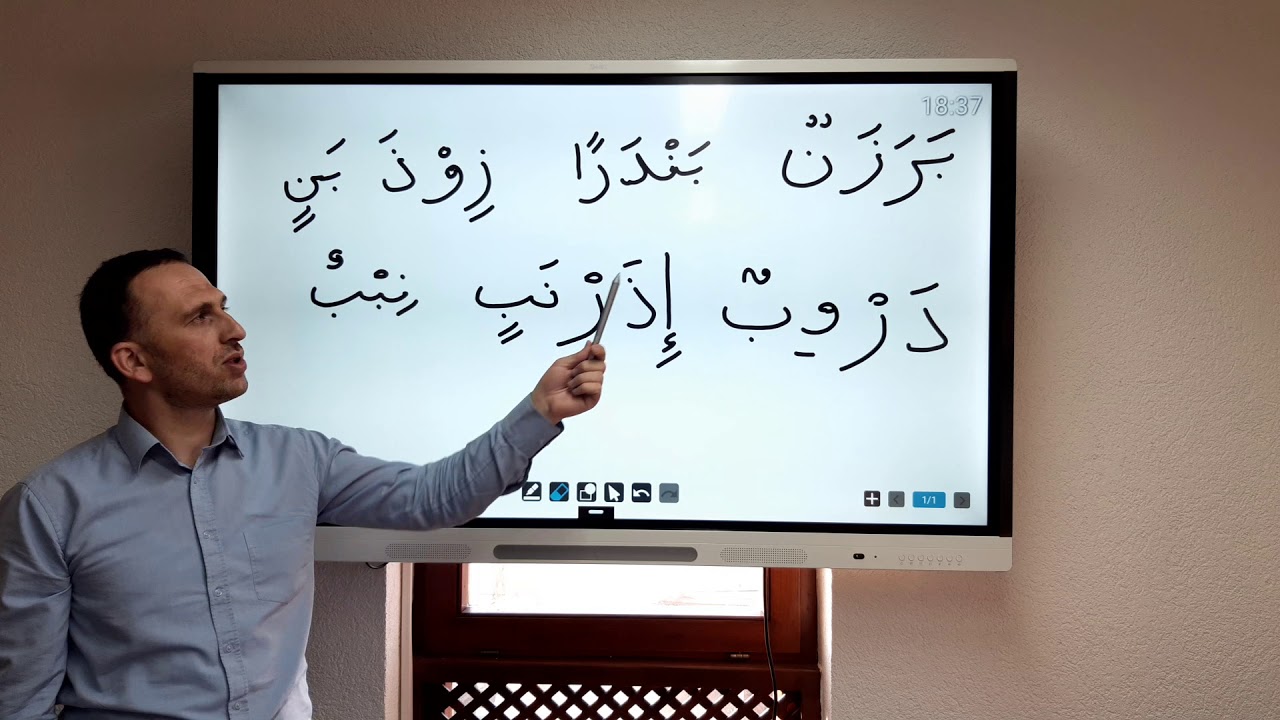 18:37
بَرَزَنٌ بَنْدَرًا زِوْذَ بَنٍ
دَرْوِبٌ إِذَرْنَبٍ نِبْبٌ
1/1